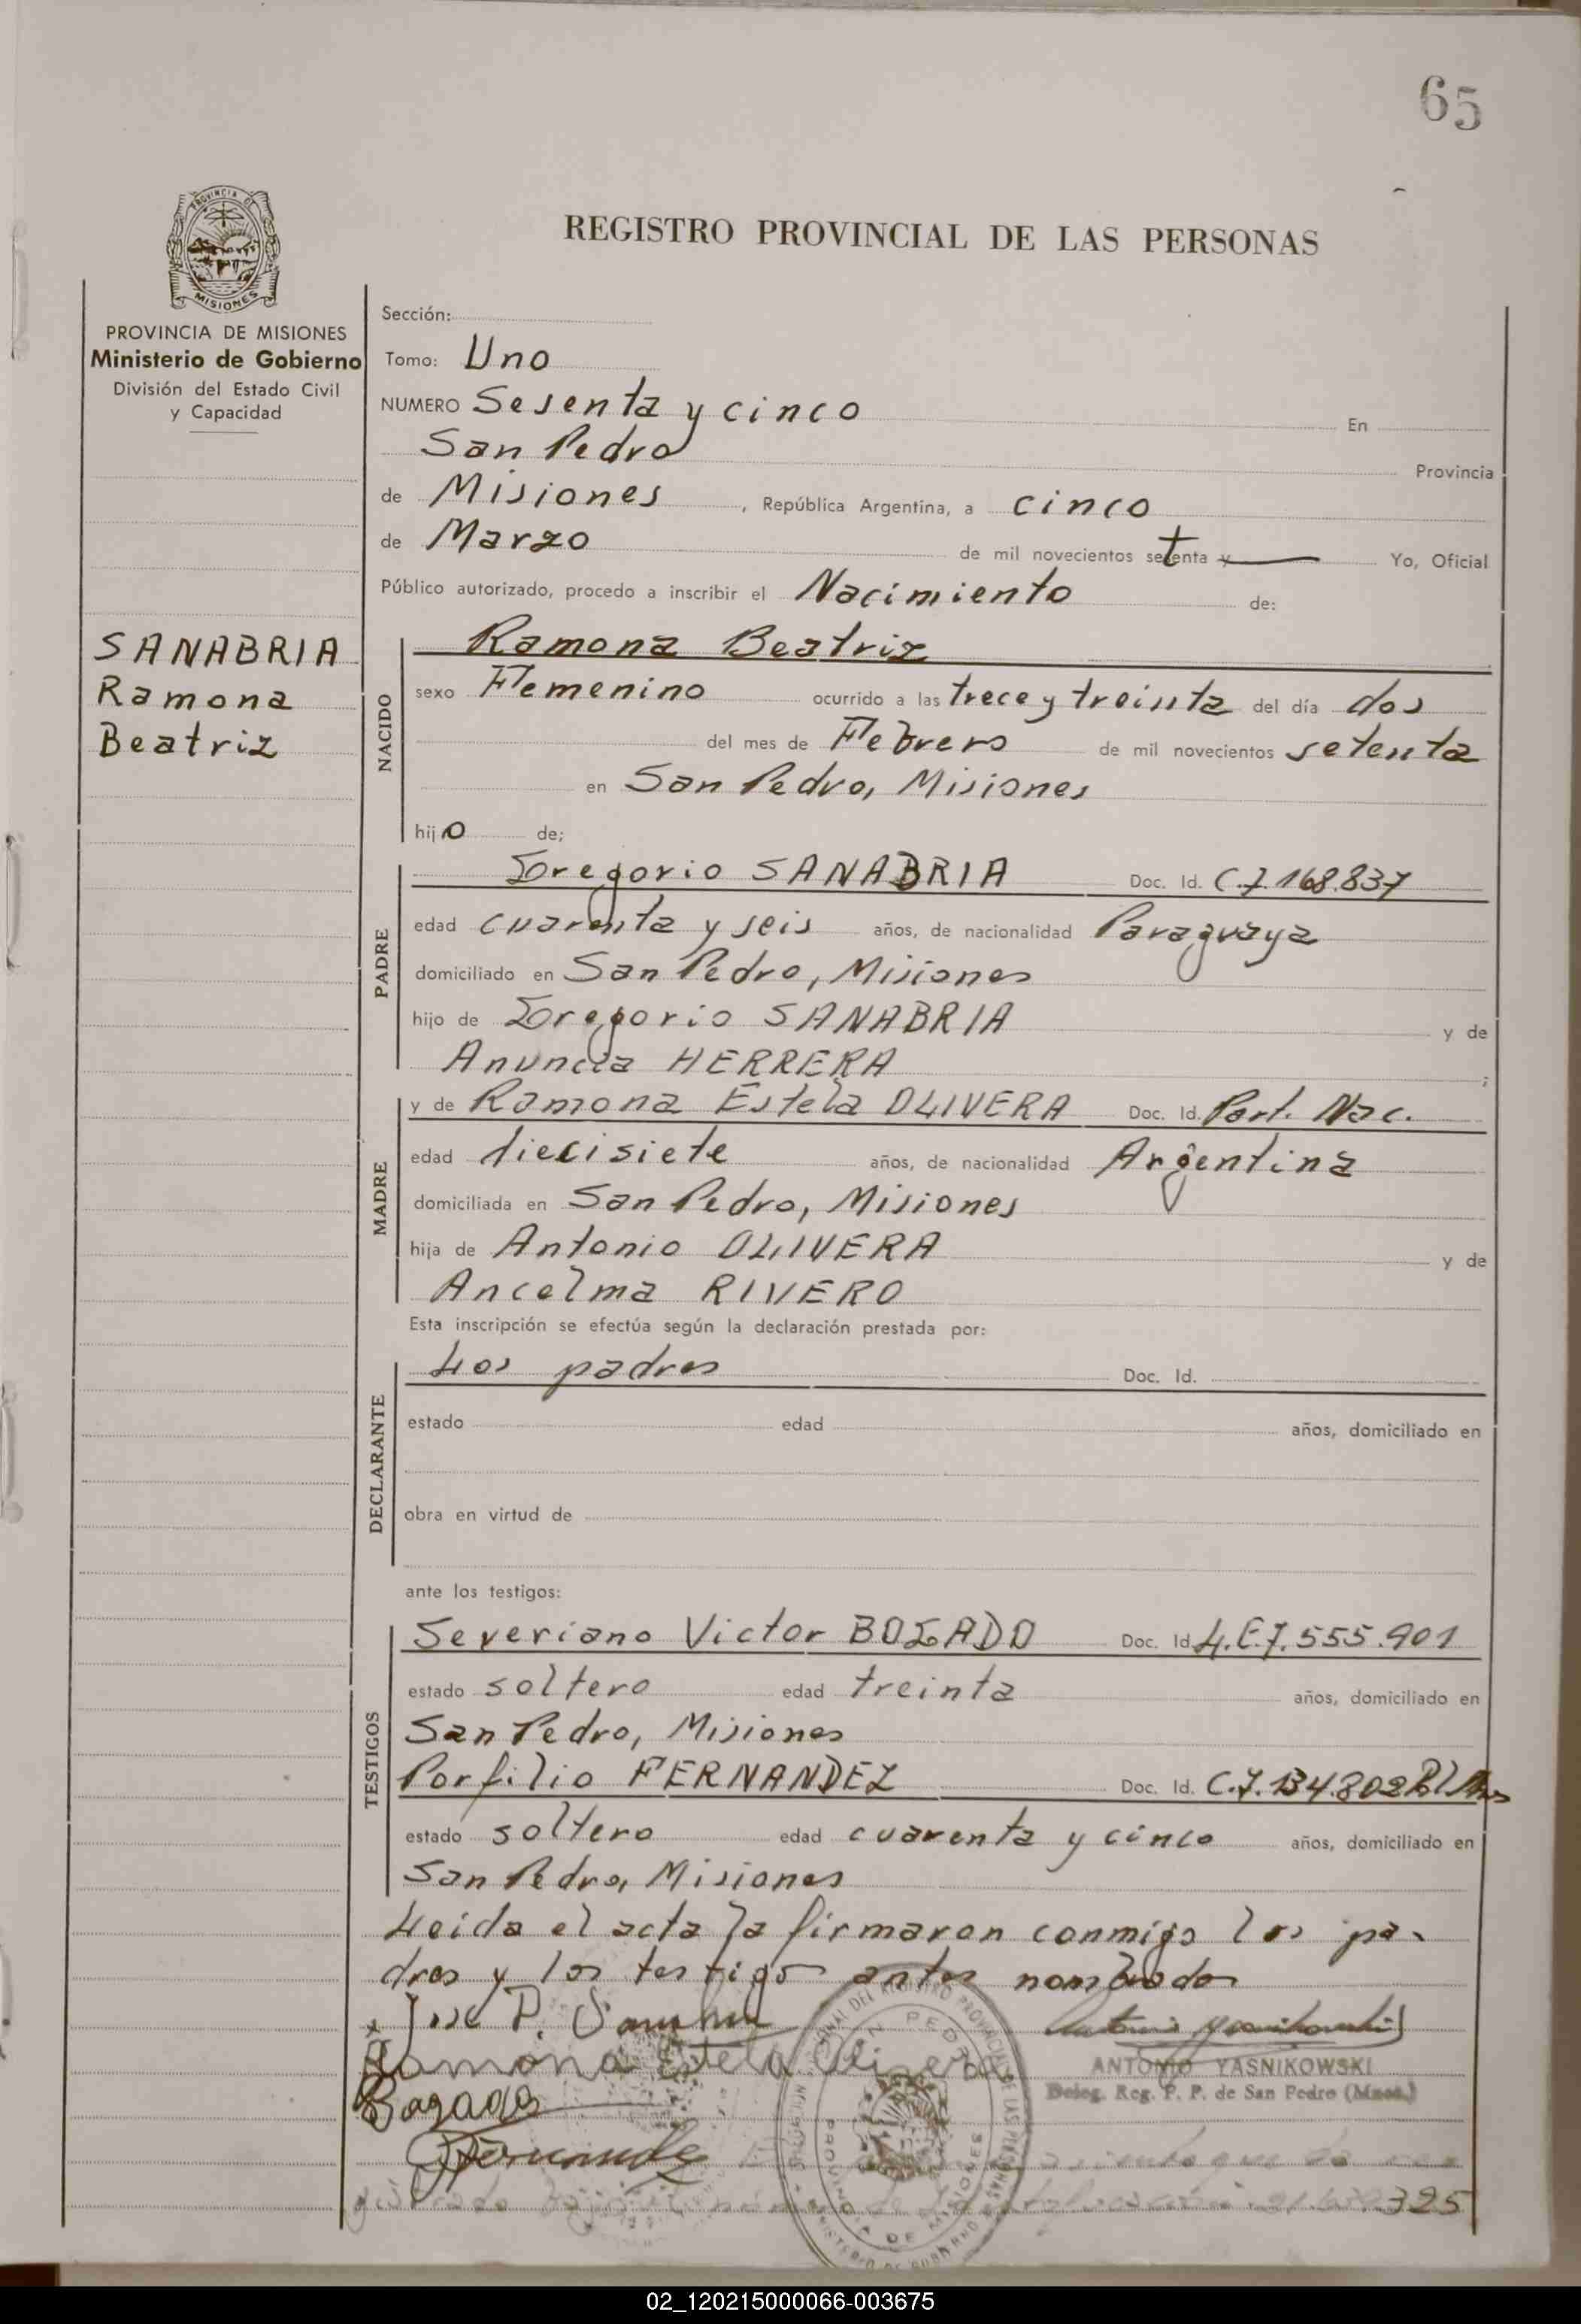 65
REGISTRO PROVINCIAL DE LAS PERSONAS
PROVINCIA DE MISIONES
Ministerio de Gobierno
División del Estado Civil
y Capacidad
SANABRIA
Ramona
Beatriz
Sección:
Tomo: Uno
NUMERO Sesenta y cinco En
San Pedro Provincia
de Misiones, República Argentina, a cinco
de Marzo de mil novecientos setenta y Yo, Oficial
Público autorizado, procedo a inscribir el Nacimiento de:
NACIDO
Ramona Beatriz
sexo Femenino ocurrido a las trece y treinta del día dos
del mes de Febrero de mil novecientos setenta
en San Pedro, Misiones
hijo de;
PADRE
Gregorio SANABRIA Doc. Id. C.I.168.837
edad cuarenta y seis años, de nacionalidad Paraguaya
domiciliado en San Pedro, Misiones
hijo de Gregorio SANABRIA y de
Anuncia HERRERA ;
MADRE
y de Ramona Estela OLIVERA Doc. Id. Part. Nac.
edad diecisiete años, de nacionalidad Argentina
domiciliada en San Pedro, Misiones
hija de Antonio OLIVERA y de
Ancelma RIVERO
Esta inscripción se efectúa según la declaración prestada por:
DECLARANTE
Los padres Doc. Id.
estado edad años, domiciliado en
obra en virtud de
ante los testigos:
TESTIGOS
Severiano Victor BOGADO Doc. Id L.E.7.555.901
estado soltero edad treinta años, domiciliado en
San Pedro, Misiones
Porfilio FERNANDEZ Doc. Id. C.I.134.802
estado soltero edad cuarenta y cinco años, domiciliado en
San Pedro, Misiones
Leida el acta la firmaron conmigo los pa-
dres y los testigos antes nombrados
Ramona Estela Olivera
ANTONIO YASNIKOWSKI
Deleg. Reg. P. P. de San Pedro (Mnes.)
Bogado
325
02_120215000066-003675